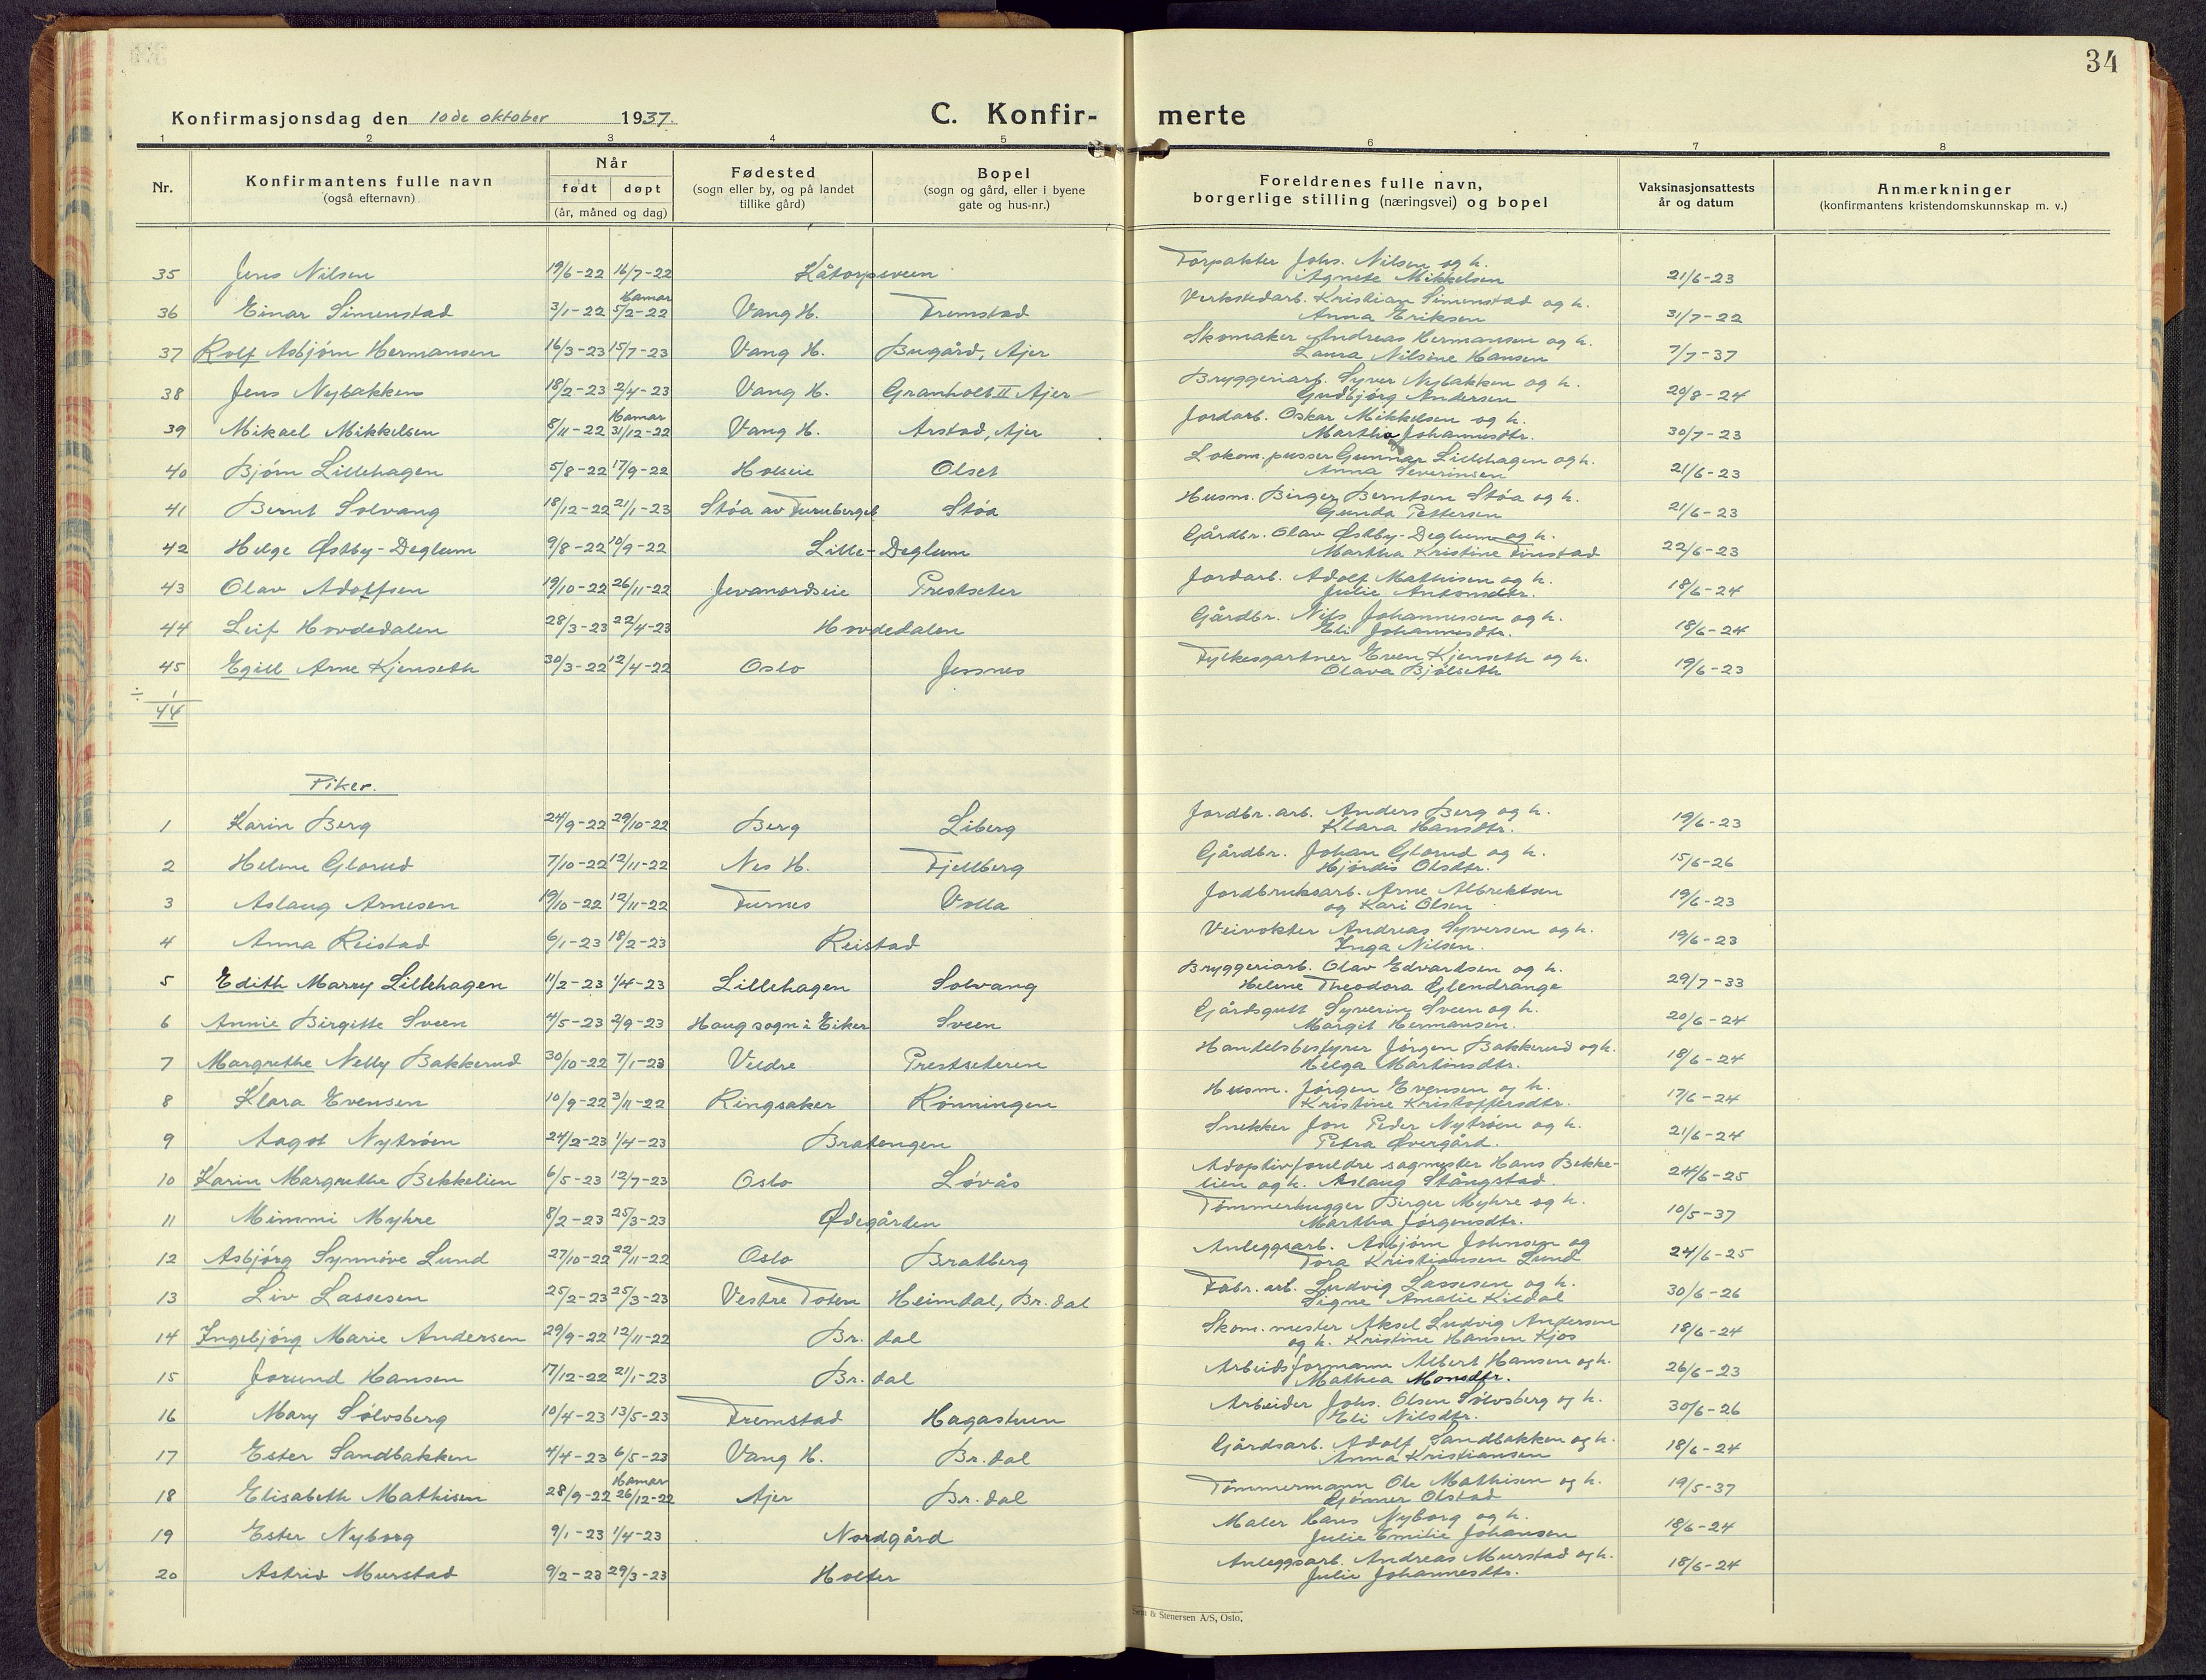 34
Konfirmasjonsdag den 10de oktober 1937.
C. Konfir-merte
1 2 3 4 5 6 7 8
Nr.
Konfirmantens fulle navn
(også efternavn)
Når
født døpt
(år, måned og dag)
Fødested
(sogn eller by, og på landet
tillike gård)
Bopel
(sogn og gård, eller i byene
gate og hus-nr.)
Foreldrenes fulle navn,
borgerlige stilling (næringsvei) og bopel
Vaksinasjonsattests
år og datum
Anmerkninger
(konfirmantens kristendomskunnskap m. v.)
35 Jens Nilsen 19/6-22 16/7-22 Kåtorpsveen Torpakter Johs. Nilsen og h.
Agnete Mikkelsen 21/6-23
36 Einar Simenstad 3/1-22 Hamar 5/2-22 Vang H. Fremstad Verkstedarb. Kristian Simenstad og h.
Anna Eriksen 31/7-22
37 Rolf Asbjørn Hermansen 16/3-23 15/7-23 Vang H. Bugård, Ajer Skomaker Andreas Hermansen og h.
Laura Nilsine Hansen 7/7-37
38 Jens Nybakken 18/2-23 2/4-23 Vang H. Granholt II Ajer Bryggeriarb. Syver Nybakken og h.
Gudbjørg Andersen 20/8-24
39 Mikael Mikkelsen 8/11-22 Hamar 31/12-22 Vang H. Arstad, Ajer Jordarb. Oskar Mikkelsen og h.
Martha Johannesdtr. 30/7-23
40 Bjørn Lillehagen 5/8-22 17/9-22 Holseie Olset Lokom. pusser Gunnar Lillehagen og h.
Anna Severinsen 21/6-23
41 Bernt Solvang 18/12-22 21/1-23 Stóa av Furuberget Stóa Husm. Birger Berntsen Stóa og h.
Gunda Pettersen 21/6-23
42 Helge Østby-Deglum 9/8-22 10/9-22 Lille-Deglum Gårdbr. Olav Østby-Deglum og h.
Martha Kristine Finstad 22/6-23
43 Olav Adolfsen 19/10-22 26/11-22 Jevanordseie Prestseter Jordarb. Adolf Mathisen og h.
Julie Antonsdtr. 18/6-24
44 Leif Hovdedalen 28/3-23 22/4-23 Hovdedalen Gårdbr. Nils Johannessen og h.
Eli Johannesdtr. 18/6-24
45 Egill Arne Kjenseth 30/3-22 12/4-22 Oslo Jessnes Fylkesgartner Even Kjenseth og h.
Olava Bjølseth 19/6-23
÷ 1
44
Piker.
1 Karin Berg 24/9-22 29/10-22 Berg Liberg Jordbr. arb. Anders Berg og h.
Klara Hansdtr. 19/6-23
2 Helene Glorud 7/10-22 12/11-22 Nes H. Fjellberg Gårdbr. Johan Glorud og h.
Hjørdis Olsdtr. 15/6-26
3 Aslaug Arnesen 19/10-22 12/11-22 Furnes Volla Jordbruksarb. Arne Albrektsen
og Kari Olsen 19/6-23
4 Anna Reistad 6/1-23 18/2-23 Reistad Veivokter Andreas Syversen og h.
Inga Nilsen. 19/6-23
5 Edith Marry Lillehagen 11/2-23 1/4-23 Lillehagen Solvang Bryggeriarb. Olav Edvardsen og h.
Helene Theodora Glendrange 29/7-33
6 Annie Birgitte Sveen 4/5-23 2/9-23 Haug sogn i Eiker Sveen Gårdsgutt Syverin Sveen og h.
Margit Hermansen. 20/6-24
7 Margrethe Nelly Bakkerud 30/10-22 7/1-23 Veldre Prestseteren Handelsbestyrer Jørgen Bakkerud og h.
Helga Martinsdtr. 18/6-24
8 Klara Evensen 10/9-22 3/11-22 Ringsaker Rønningen Husm. Jørgen Evensen og h.
Kristine Kristoffersdtr. 17/6-24
9 Aagot Nytrøen 24/2-23 1/4-23 Bratengen Snekker Jon Peder Nytrøen og h.
Petra Øvergård. 21/6-24
10 Karin Margrethe Bekkelien 6/5-23 12/7-23 Oslo Løvås Adoptivforeldre sagmester Hans Bekke-
lien og h. Aslaug Stångstad. 24/6-25
11 Mimmi Myhre 8/2-23 25/3-23 Ødegården Tømmerhugger Birger Myhre og h.
Martha Jørgensdtr. 10/5-37
12 Asbjørg Synnøve Lund 27/10-22 22/11-22 Oslo Bratberg Anleggsarb. Asbjørn Johnsen og
Tora Kristiansen Lund 24/6-25
13 Liv Lassesen 25/2-23 25/3-23 Vestre Toten Heimdal, Br. dal Fabr. arb. Ludvig Lassesen og h.
Signe Amalie Kildal 30/6-26
14 Ingebjørg Marie Andersen 29/9-22 12/11-22 Br. dal Skom. mester Aksel Ludvig Andersen
og h. Kristine Hansen Kjos 18/6-24
15 Jorund Hansen 17/12-22 21/1-23 Br. dal Arbeidsformann Albert Hansen og h.
Mathea Monsdtr. 26/6-23
16 Mary Sølvsberg 10/4-23 13/5-23 Fremstad Hagastuen Arbeider Johs. Olsen Sølvsberg og h.
Eli Nilsdtr. 30/6-26
17 Ester Sandbakken 4/4-23 6/5-23 Vang H. Br. dal Gårdsarb. Adolf Sandbakken og h.
Anna Kristiansen 18/6-24
18 Elisabeth Mathisen 28/9-22 Hamar 26/12-22 Ajer Br. dal Tømmermann Ole Mathisen og h.
Gjønner Olstad 19/5-37
19 Ester Nyborg 9/1-23 1/4-23 Nordgård Maler Hans Nyborg og h.
Julie Emilie Johansen 18/6-24
20 Astrid Murstad 9/2-23 29/3-23 Holter Anleggsarb. Andreas Murstad og h.
Julie Johannesdtr. 18/6-24
& Stenersen A/S, Oslo.